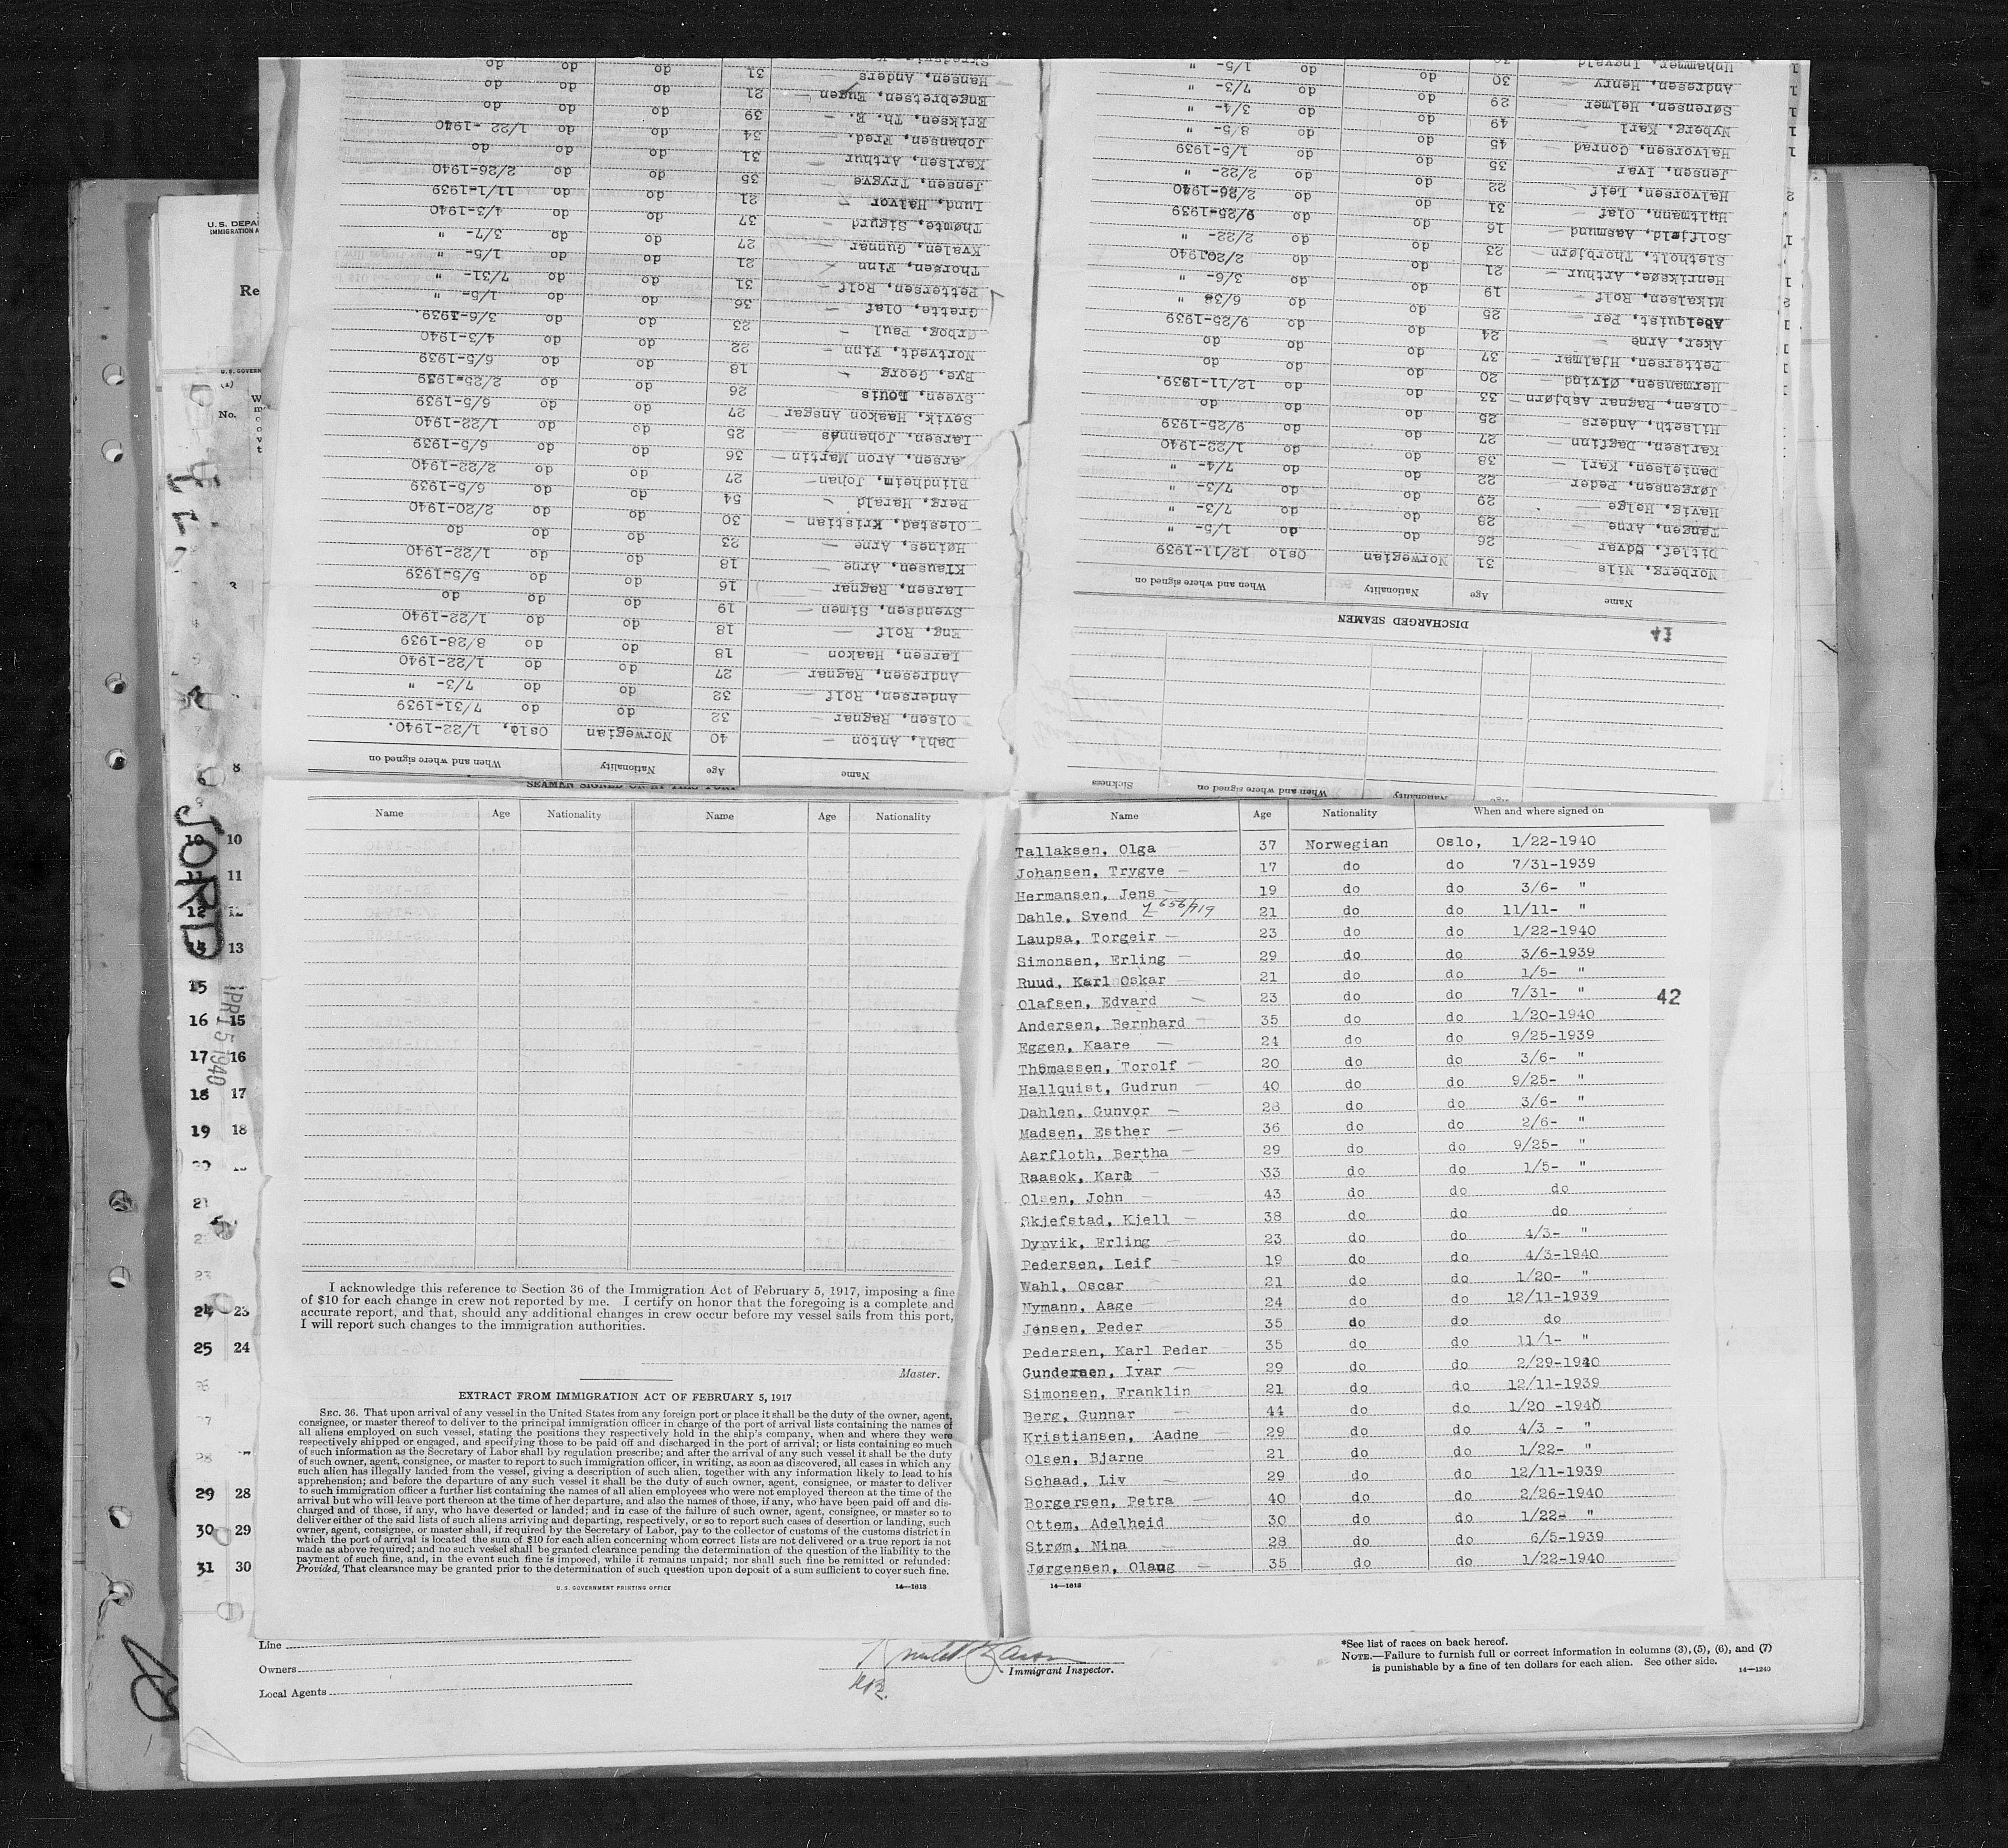 U.S. DEPA
IMMIGRATION A
Re
U.S. GOVER
(1)
No.
DISCHARGED SEAMEN
Name Age Nationality When and where signed on
Norberg, Nils 31 Norwegian Oslo 12/11-1939
Ditlef, Edvar 26 do do 1/5- "
Tangen, Arne 28 do do 7/3- "
Havig, Helge 29 do do 7/3- "
Jørgensen, Peder 22 do do 7/4- "
Danielsen, Karl 38 do do 1/22-1940
Karlsen, Dagfinn 27 do do 9/25-1939
Hilseth, Anders 25 do do do
Olsen, Ragnar Asbjørn 33 do do 12/11-1939.
Hermansen, Øivind 20 do do do
Pettersen, Hjalmar 37 do do do
Aker, Arne 24 do do 9/25-1939
Abelquist, Per 25 do do 6/38 "
Mikalsen, Rolf 19 do do 3/6- "
Henriksøe, Arthur 21 do do 2/20-1940
Sletholt, Thorbjørn 23 do do 2/22- "
Solfjeld, Aasmund 16 do do 9/25-1939
Hultmann, Olaf 31 do do 2/26-1940
Halvorsen, Leif 22 do do 2/22- "
Jensen, Ivar 35 do do 1/5-1939
Halvorsen, Conrad 45 do do 8/5- "
Nyberg, Karl 49 do do 3/4- "
Sørensen, Helmer 29 do do 7/3- "
Andresen, Henry 30 do do 1/5- "
Unhammer, Ingvald
14
Name Age Nationality When and where signed on
Dahl, Anton 40 Norwegian Oslo, 1/22-1940.
Olsen, Ragnar 32 do do 7/31-1939
Andersen, Rolf 32 do do 7/3- "
Andresen, Ragnar 27 do do 1/22-1940
Larsen, Haakon 18 do do 8/28-1939
Eng, Rolf 18 do do 1/22-1940
Svendsen, Simen 19 do do do
Larsen, Ragnar 16 do do 5/5-1939
Klausen, Arne 18 do do 1/22-1940
Høines, Arne 23 do do do
Olestad, Kristian 30 do do 2/20-1940
Berg, Harald 54 do do 6/5-1939
Blindheim, Johan 27 do do 2/22-1940
arsen, Aron Martin 36 do do 6/5-1939
Larsen, Johannes 25 do do 1/22-1940
Sevik, Haakon Ansgar 27 do do 6/5-1939
Sveen, Louis 26 do do 2/25-1939
Bye, Georg 18 do do 6/5-1939
Nortvedt, Finn 22 do do 4/3-1940
Ørbog, Paul 23 do do 3/6-1939.
Grette, Olaf 36 do do 1/5- "
Pettersen, Rolf 31 do do 7/31- "
Thorsen, Finn 21 do do 1/5- "
Kvalen, Gunnar 27 do do 3/7- "
Thømte, Sigurd 37 do do 4/3-1940
Lund, Halvor 21 do do 11/1-1939
Jensen, Trygve 35 do do 2/26-1940
Karlsen, Arthur 31 do do do
Johansen, Fred. 34 do do 1/22 -1940
Eriksen, Th. E. 39 do do do
Engebretsen, Eugen 21 do do do
Hansen, Anders 31 do do do
When and where signed on Sickness
SEAMEN SIGNED ON AT THIS PORT
Name Age Nationality Name Age Nationality
Name Age Nationality When and where signed on
Tallaksen, Olga 37 Norwegian Oslo, 1/22-1940
Johansen, Trygve 17 do do 7/31-1939
Hermansen, Jens 19 do do 3/6- "
Dahle, Svend 656/719 21 do do 11/11- "
Laupsa, Torgeir 23 do do 1/22-1940
Simonsen, Erling 29 do do 3/6-1939
Ruud, Karl Oskar 21 do do 1/5- "
Olafsen, Edvard 23 do do 7/31- "
42
Andersen, Bernhard 35 do do 1/20-1940
Eggen, Kaare 24 do do 9/25-1939
Thomassen, Torolf 20 do do 3/6- "
Hallquist, Gudrun 40 do do 9/25- "
Dahlen, Gunvor 28 do do 3/6- "
Madsen, Esther 36 do do 2/6- "
Aarfloth, Bertha 29 do do 9/25- "
Raasok, Karl 33 do do 1/5- "
Olsen, John 43 do do do
Skjefstad, Kjell 38 do do do
Dypvik, Erling 23 do do 4/3- "
Pedersen, Leif 19 do do 4/3-1940
Wahl, Oscar 21 do do 1/20- "
Nymann, Aage 24 do do 12/11-1939
Jensen, Peder 35 do do do
Pedersen, Karl Peder 35 do do 11/1- "
Gundersen, Ivar 29 do do 2/29-1940
Simonsen, Franklin 21 do do 12/11-1939
Berg, Gunnar 44 do do 1/20 -1940
Kristiansen, Aadne 29 do do 4/3 - "
Olsen, Bjarne 21 do do 1/22- "
Schaad, Liv 29 do do 12/11-1939
Borgersen, Petra 40 do do 2/26-1940
Ottem, Adelheid 30 do do 1/22- "
Strøm, Nina 28 do do 6/5-1939
Jørgensen, Olaug 35 do do 1/22-1940
14—1613
I acknowledge this reference to Section 36 of the Immigration Act of February 5, 1917, imposing a fine
of $10 for each change in crew not reported by me. I certify on honor that the foregoing is a complete and
accurate report, and that, should any additional changes in crew occur before my vessel sails from this port,
I will report such changes to the immigration authorities.
Master.
EXTRACT FROM IMMIGRATION ACT OF FEBRUARY 5, 1917
SEC. 36. That upon arrival of any vessel in the United States from any foreign port or place it shall be the duty of the owner, agent,
consignee, or master thereof to deliver to the principal immigration officer in charge of the port of arrival lists containing the names of
all aliens employed on such vessel, stating the positions they respectively hold in the ship's company, when and where they were
respectively shipped or engaged, and specifying those to be paid off and discharged in the port of arrival; or lists containing so much
of such information as the Secretary of Labor shall by regulation prescribe; and after the arrival of any such vessel it shall be the duty
of such owner, agent, consignee, or master to report to such immigration officer, in writing, as soon as discovered, all cases in which any
such alien has illegally landed from the vessel, giving a description of such alien, together with any information likely to lead to his
apprehension; and before the departure of any such vessel it shall be the duty of such owner, agent, consignee, or master to deliver
to such immigration officer a further list containing the names of all alien employees who were not employed thereon at the time of the
arrival but who will leave port thereon at the time of her departure, and also the names of those, if any, who have been paid off and dis-
charged and of those, if any, who have deserted or landed; and in case of the failure of such owner, agent, consignee, or master so to
deliver either of the said lists of such aliens arriving and departing, respectively, or so to report such cases of desertion or landing, such
owner, agent, consignee, or master shall, if required by the Secretary of Labor, pay to the collector of customs of the customs district in
which the port of arrival is located the sum of $10 for each alien concerning whom correct lists are not delivered or a true report is not
made as above required; and no such vessel shall be granted clearance pending the determination of the question of the liability to the
payment of such fine, and, in the event such fine is imposed, while it remains unpaid; nor shall such fine be remitted or refunded:
Provided, That clearance may be granted prior to the determination of such question upon deposit of a sum sufficient to cover such fine.
U.S. GOVERNMENT PRINTING OFFICE 14—1613
10 10
11 11
12 12
13
15
16 15
17 16
18 17
19 18
24 23
25 24
29 28
30 29
31 30
APR 15 1940
Line
Owners
Local Agents
Immigrant Inspector.
*See list of races on back hereof.
NOTE.—Failure to furnish full or correct information in columns (3), (5), (6), and (7)
is punishable by a fine of ten dollars for each alien. See other side.
14—1240